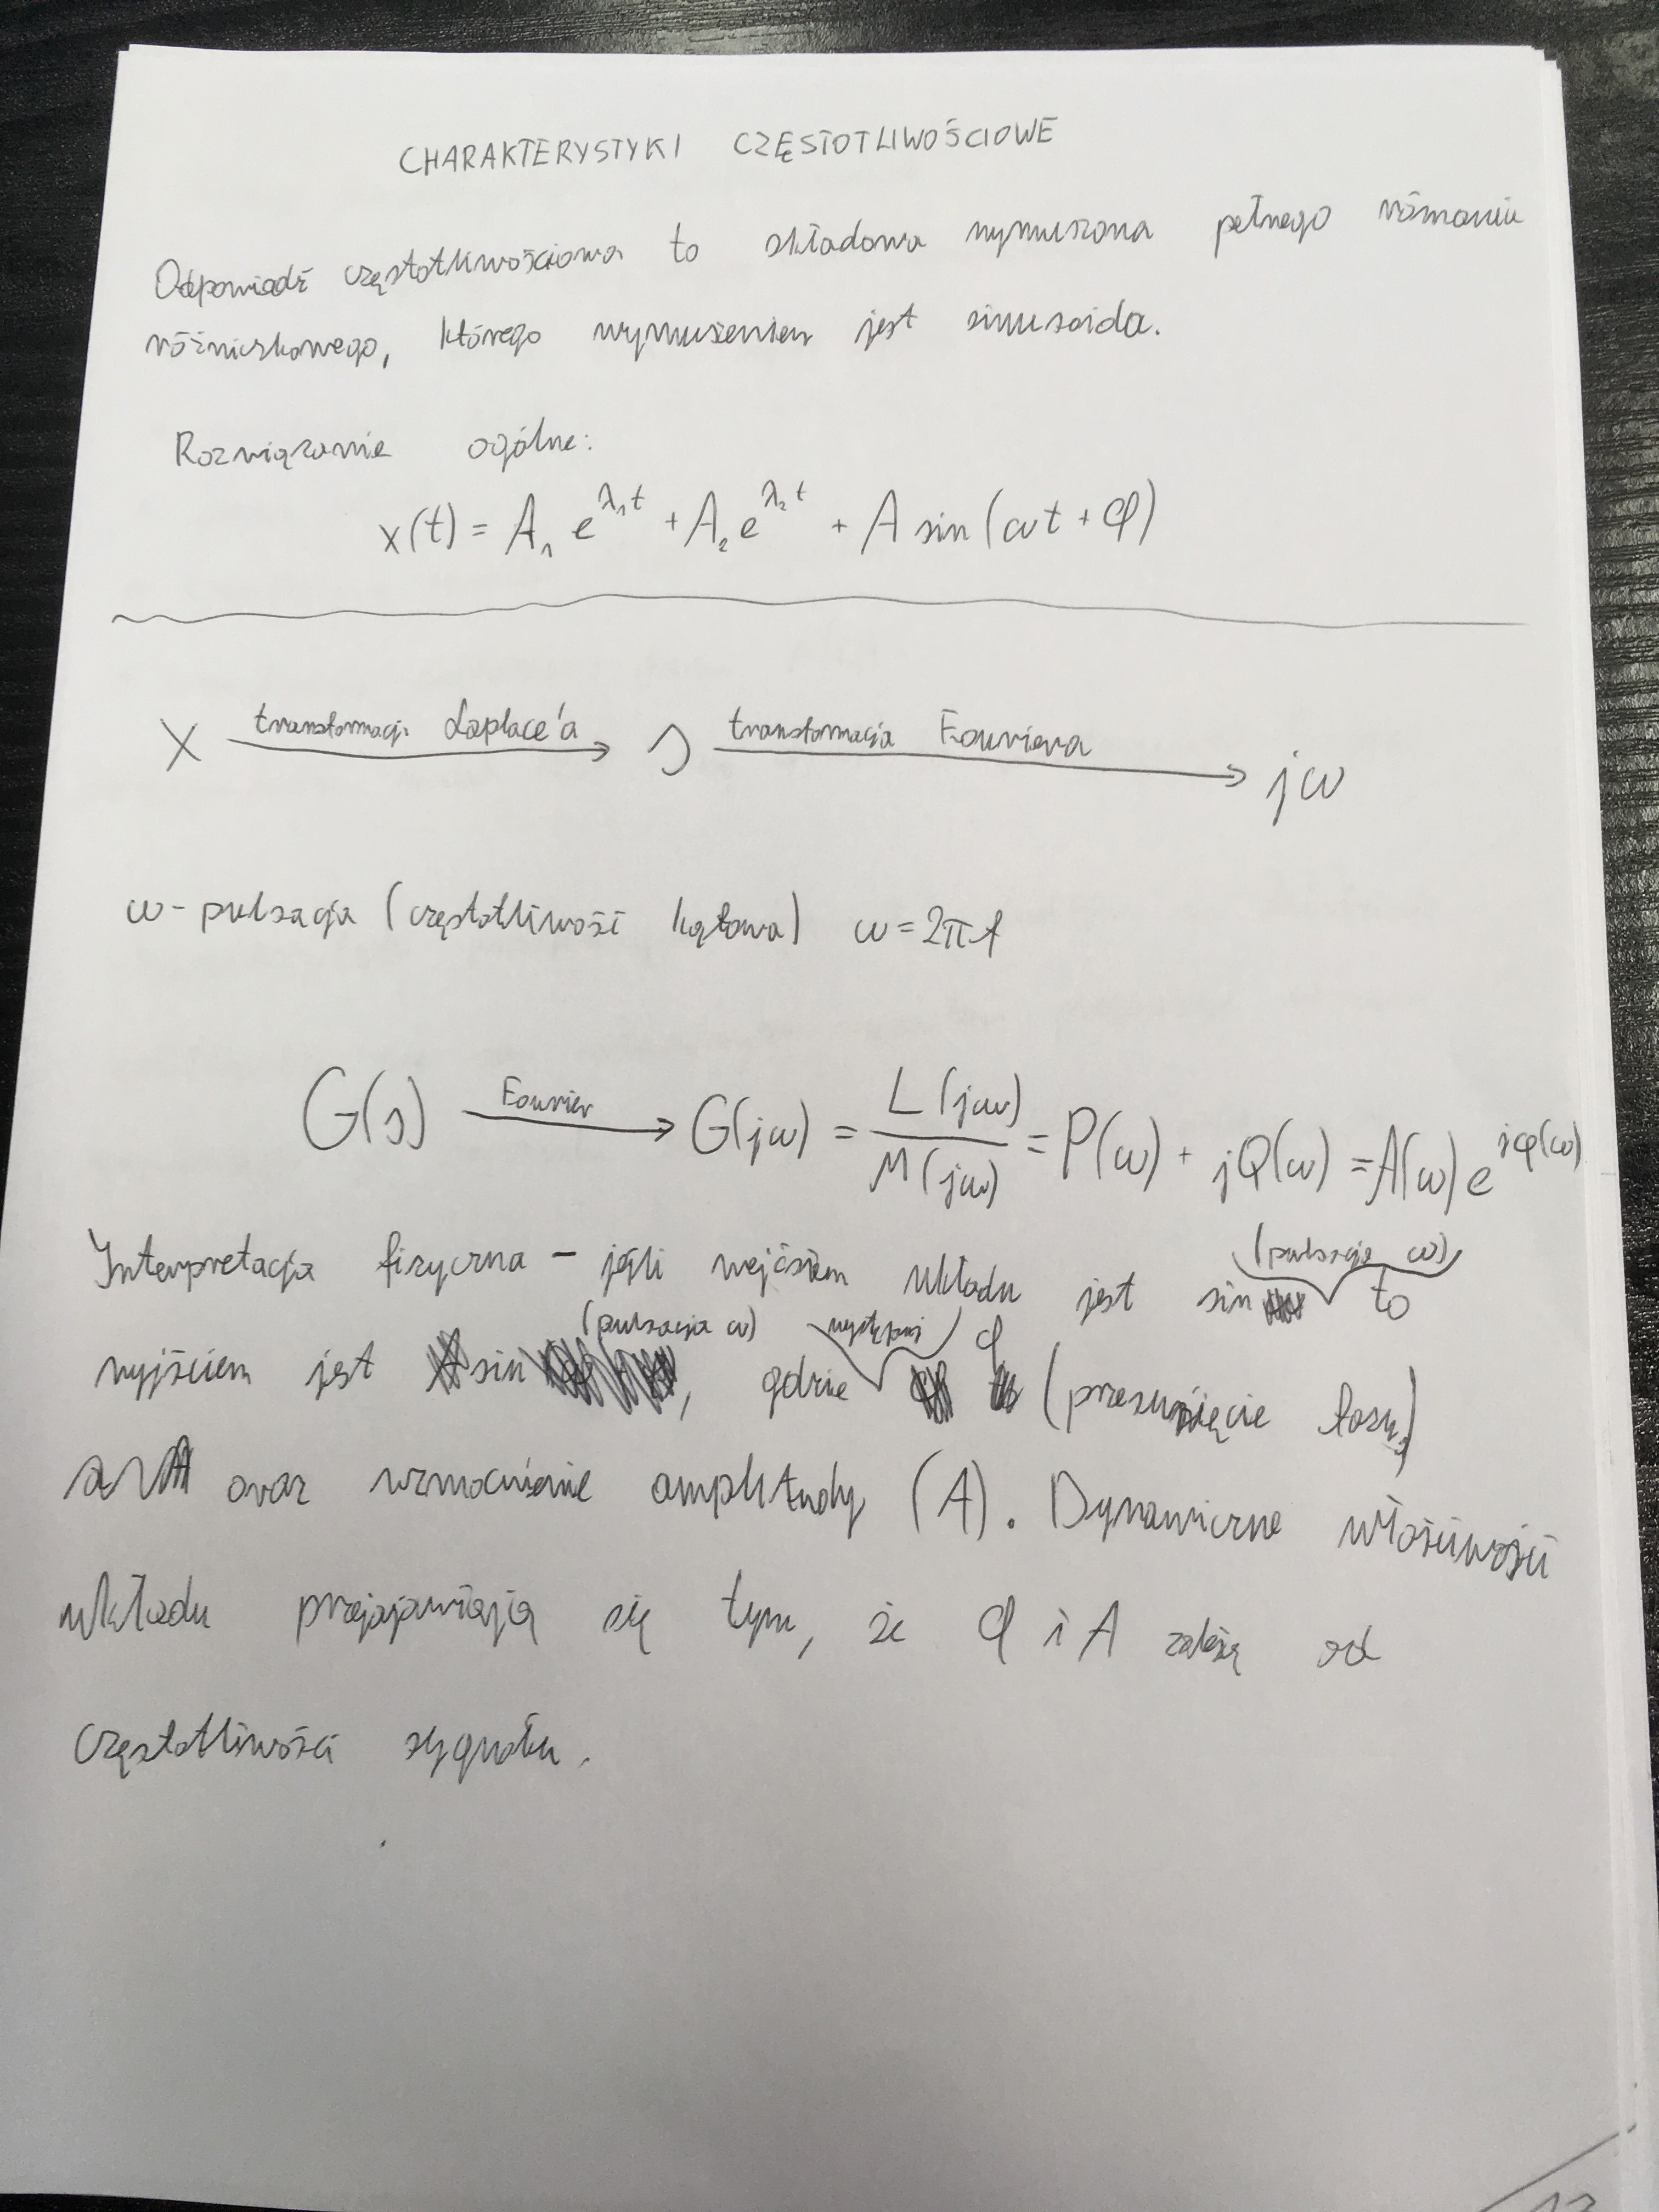 CHARAKTERYSTYKI CZĘSTOTLIWOŚCIOWE
Odpowiedź częstotliwościowa to składowa wymuszona pełnego równania
różniczkowego, którego wymuszeniem jest sinusoida.
Rozwiązanie ogólne:
x(t) = A₁ e^{λ₁t} + A₂ e^{λ₂t} + A sin(ωt + φ)
X transformacja Laplace'a → s transformacja Fouriera → jω
ω - pulsacja (częstotliwość kątowa) ω = 2πf
G(s) Fourier → G(jω) = L(jω)/M(jω) = P(ω) + jQ(ω) = A(ω) e^{jφ(ω)}
Interpretacja fizyczna - jeśli wejściem układu jest sin (pulsacja ω) to
wyjściem jest sin (pulsacja ω), gdzie występuje φ (przesunięcie fazy)
oraz wzmocnienie amplitudy (A). Dynamiczne właściwości
układu przejawiają się tym, że φ i A zależą od
częstotliwości sygnału.